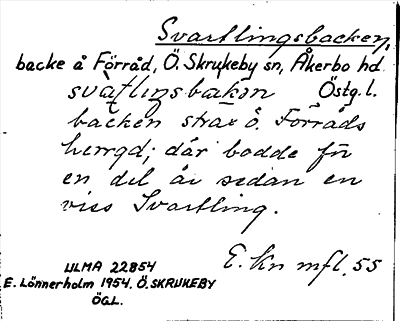 Svartlingsbacken,
backe å Förråd, Ö. Skrukeby sn, Åkerbo hd
Östg. l.
backen strax ö. Förråds
herrgd; där bodde för
en del år sedan en
viss Svartling.
E. Kn mfl. 55
ULMA 22854
E. Lönnerholm 1954. Ö. SKRUKEBY
ÖGL.